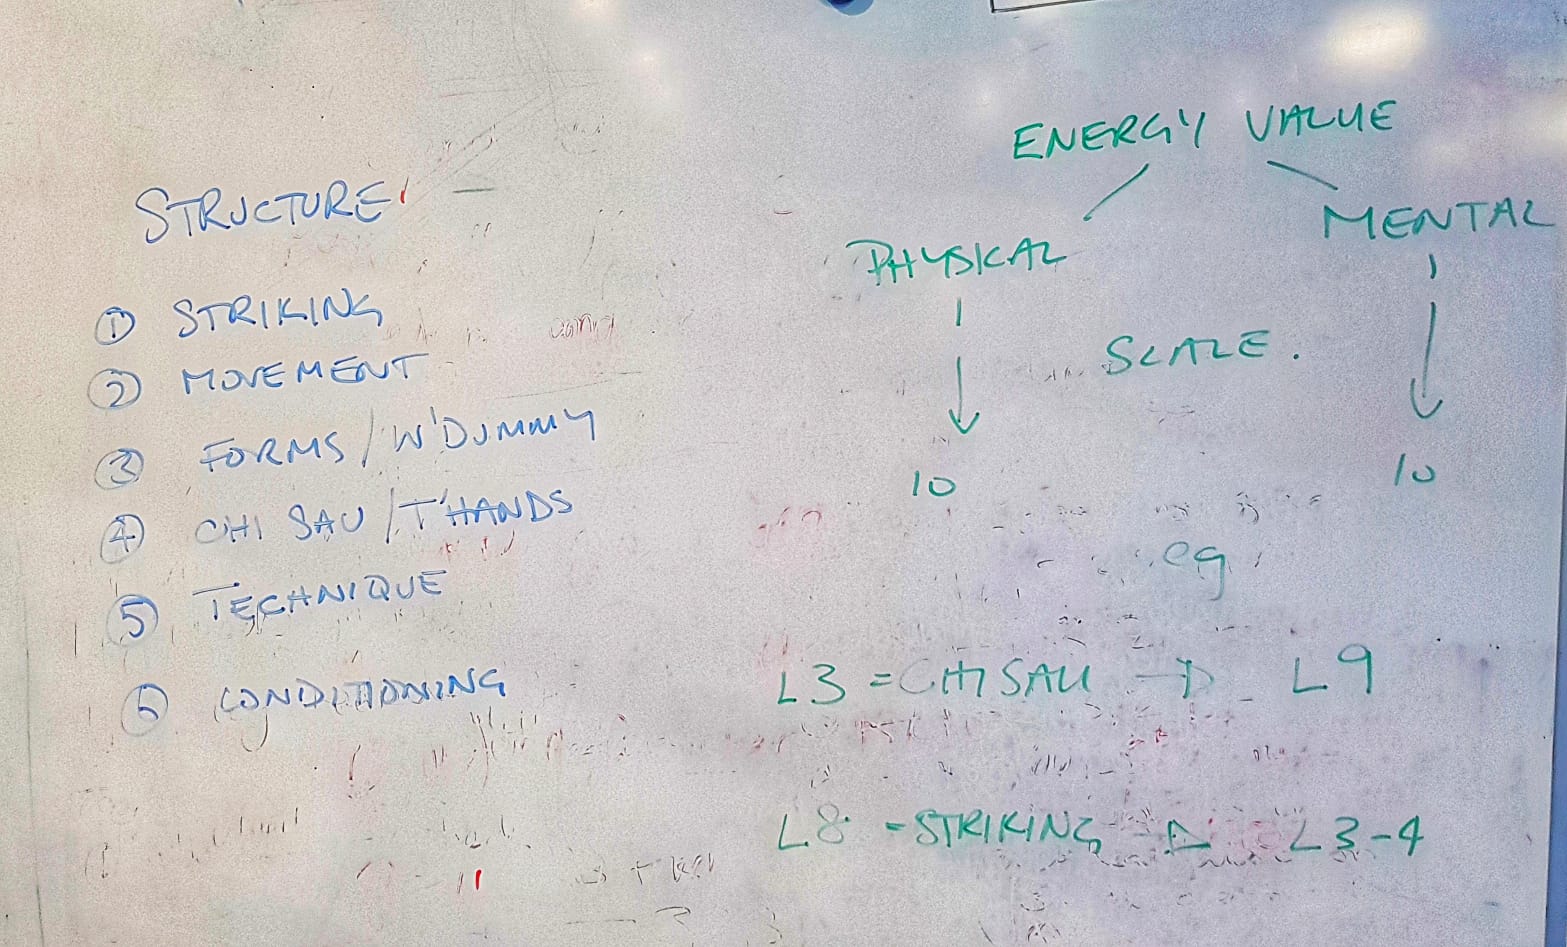 STRUCTURE
① STRIKING
② MOVEMENT
③ FORMS / W'DUMMY
④ CHI SAU / T'HANDS
⑤ TECHNIQUE
⑥ CONDITIONING
ENERGY VALUE
PHYSICAL
MENTAL
1
1
SCALE.
10
10
eg
L3 = CHI SAU → L9
L8 - STRIKING → L3-4